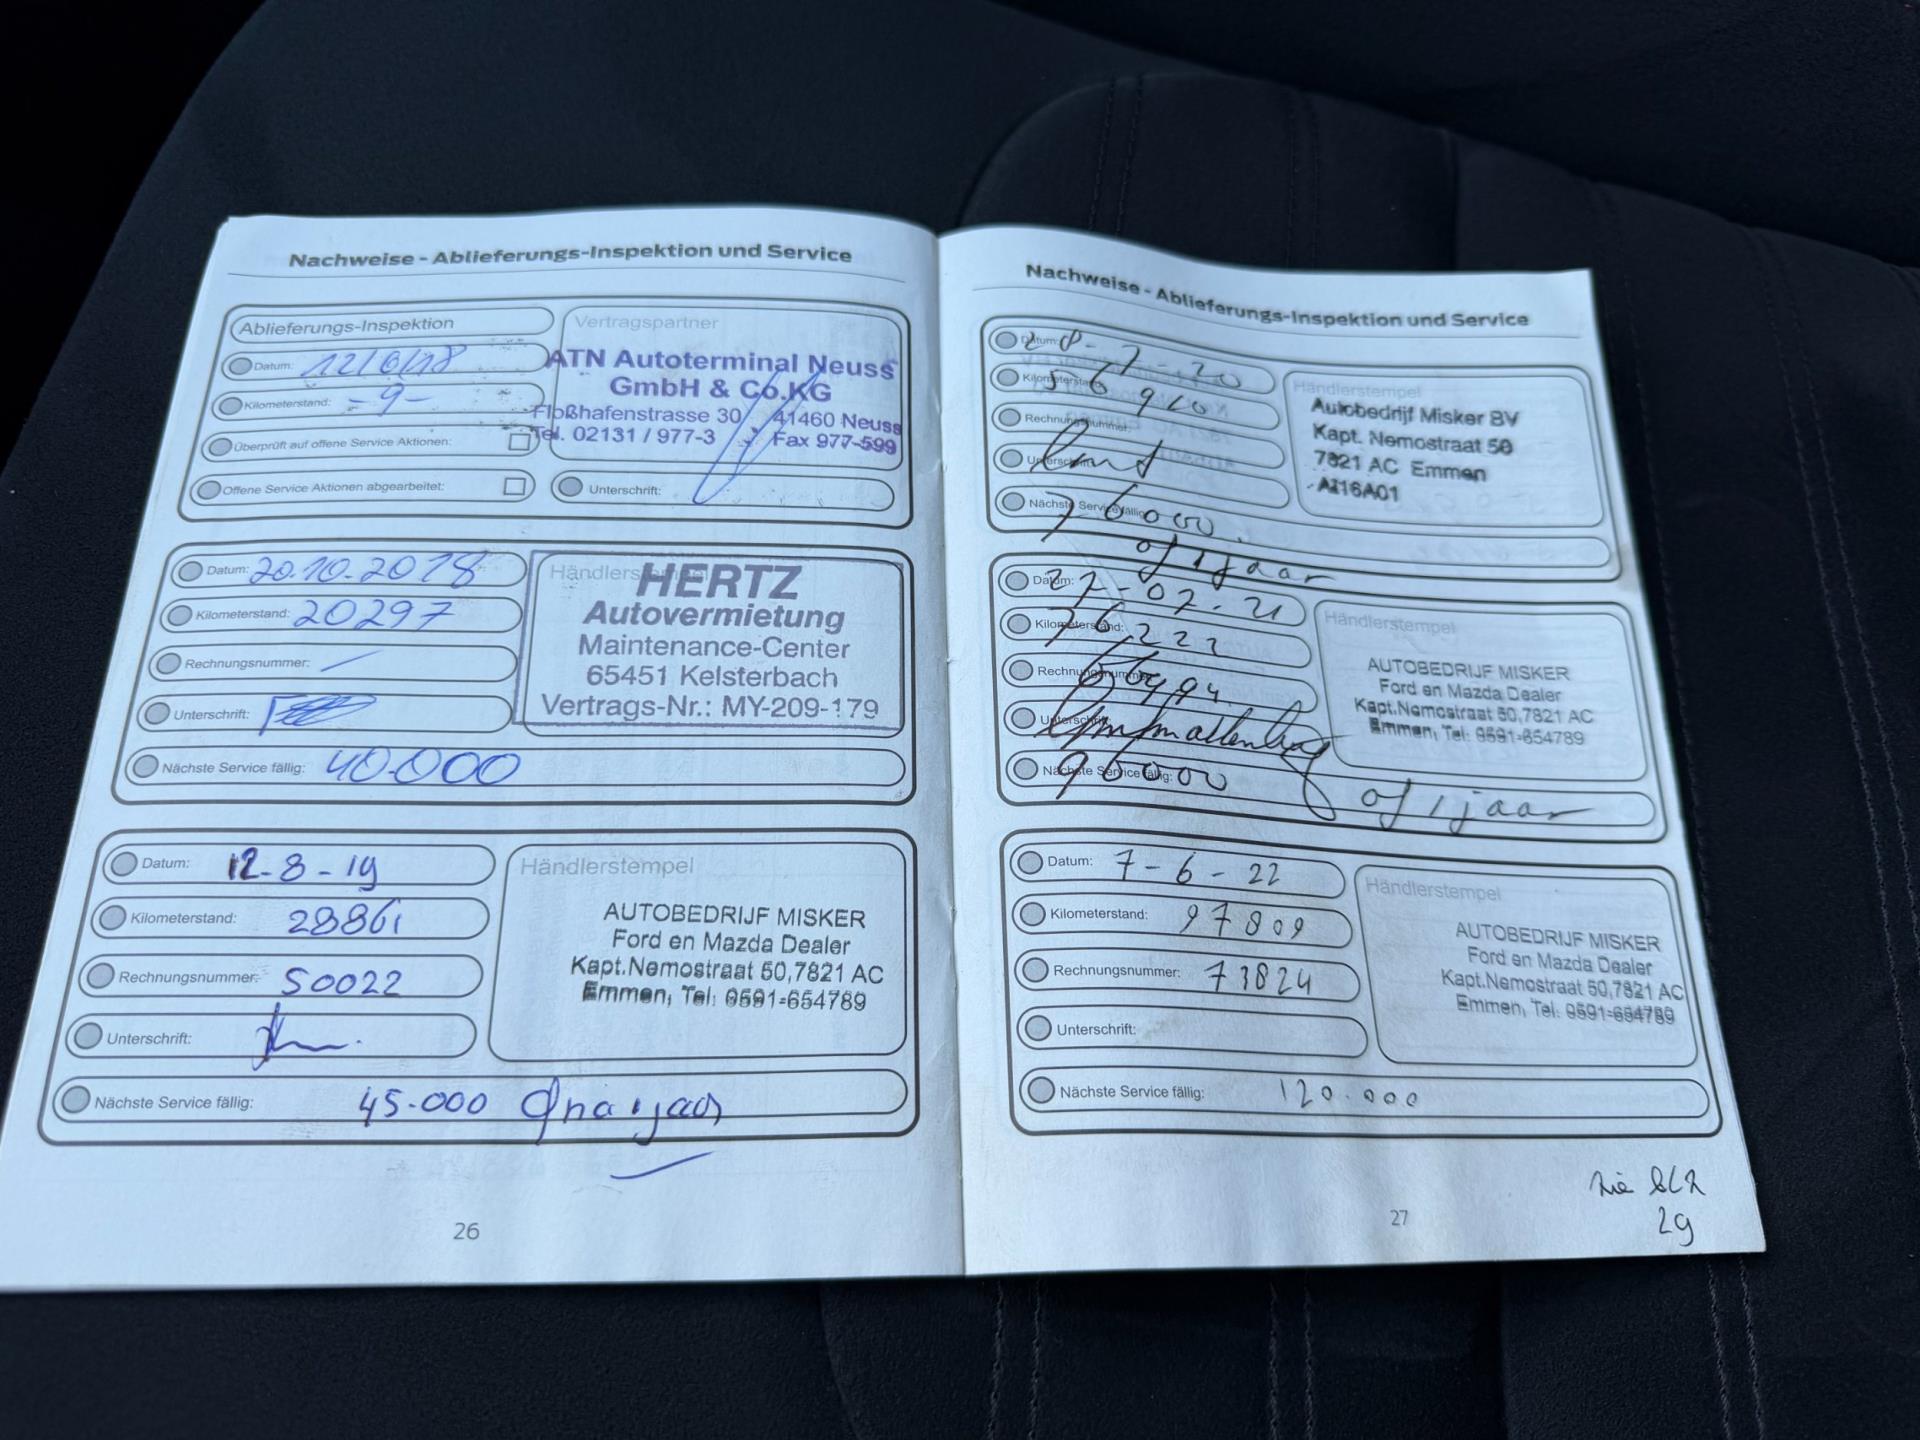 Nachweise - Ablieferungs-Inspektion und Service
Ablieferungs-Inspektion
Datum: 12/6/18
Kilometerstand: -9-
Überprüft auf offene Service Aktionen:
Offene Service Aktionen abgearbeitet:
Vertragspartner
ATN Autoterminal Neuss
GmbH & Co.KG
Floßhafenstrasse 30 41460 Neuss
Tel. 02131 / 977-3 Fax 977-599
Unterschrift:
Datum: 20.10.2018
Kilometerstand: 20297
Rechnungsnummer: —
Unterschrift:
Nächste Service fällig: 40.000
Händlerstempel
HERTZ
Autovermietung
Maintenance-Center
65451 Kelsterbach
Vertrags-Nr.: MY-209-179
Datum: 12-8-19
Kilometerstand: 28861
Rechnungsnummer: 50022
Unterschrift:
Nächste Service fällig: 45.000
Händlerstempel
AUTOBEDRIJF MISKER
Ford en Mazda Dealer
Kapt.Nemostraat 50,7821 AC
Emmen, Tel: 0591-654789
26
Nachweise - Ablieferungs-Inspektion und Service
Datum: 28-7-20
Kilometerstand:
Rechnungsnummer:
Unterschrift:
Nächste Service fällig: 76000
of 1 jaar
Händlerstempel
Autobedrijf Misker BV
Kapt. Nemostraat 50
7821 AC Emmen
AI16A01
Datum: 27-07-21
Kilometerstand: 76222
Rechnungsnummer:
Unterschrift:
Nächste Service fällig: 96000 of 1 jaar
Händlerstempel
AUTOBEDRIJF MISKER
Ford en Mazda Dealer
Kapt.Nemostraat 50,7821 AC
Emmen, Tel: 0591-654789
Datum: 7-6-22
Kilometerstand: 97809
Rechnungsnummer: 73824
Unterschrift:
Nächste Service fällig: 120.000
Händlerstempel
AUTOBEDRIJF MISKER
Ford en Mazda Dealer
Kapt.Nemostraat 50,7821 AC
Emmen, Tel: 0591-654789
27
zie BLZ
29